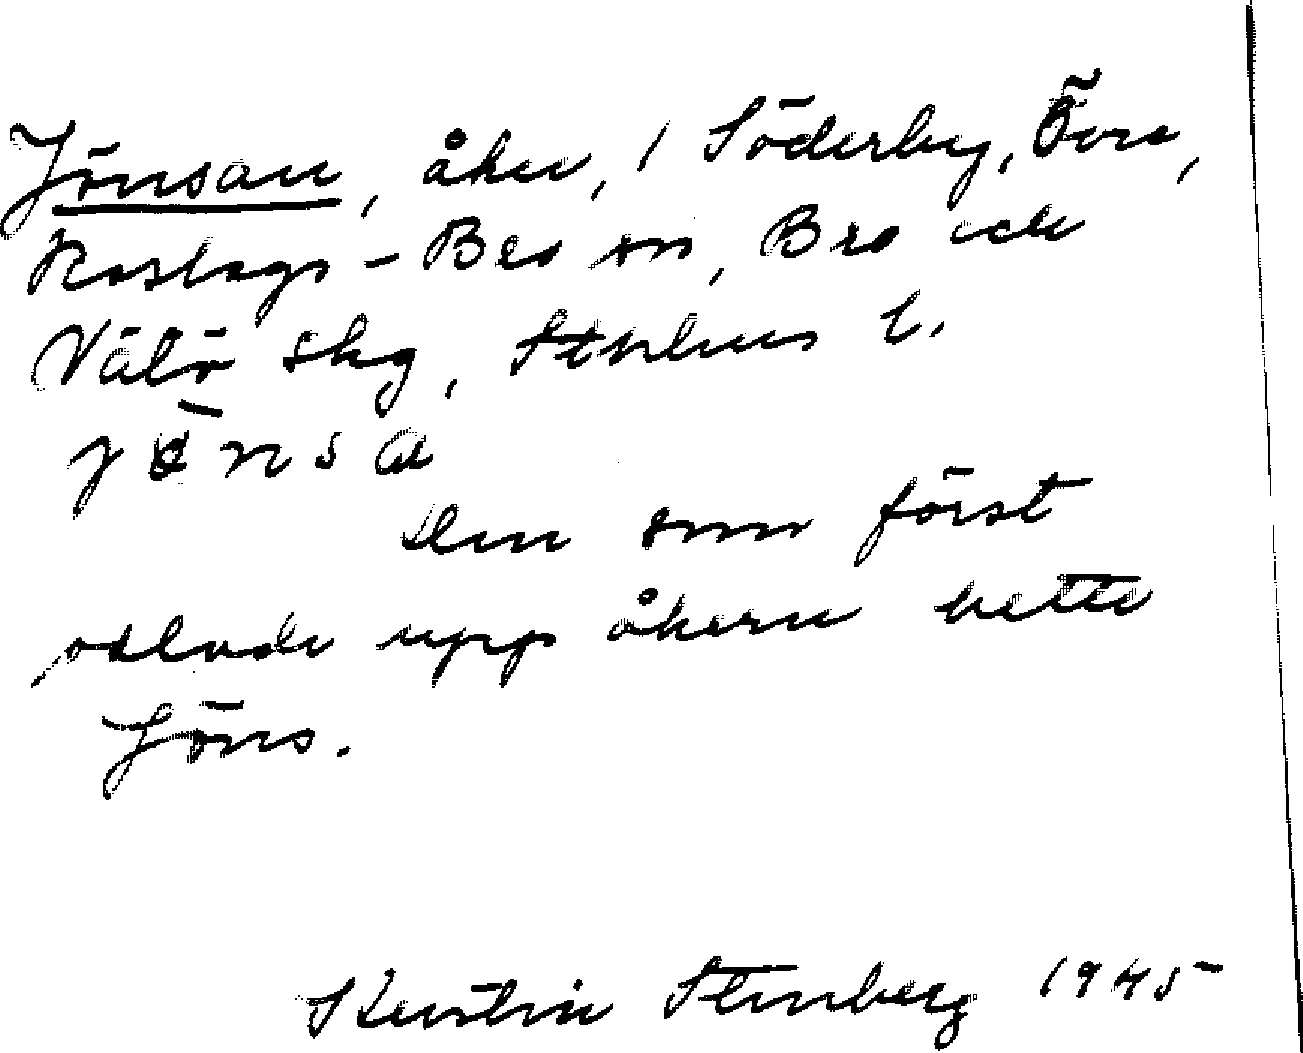 Jönsan, åker, 1 Söderby, Övre,
Roslags-Bro sn, Bro och
Vätö skg, Sthlms l.
Den som först
odlade upp åkern hette
Jöns.
Kerstin Stenberg 1945